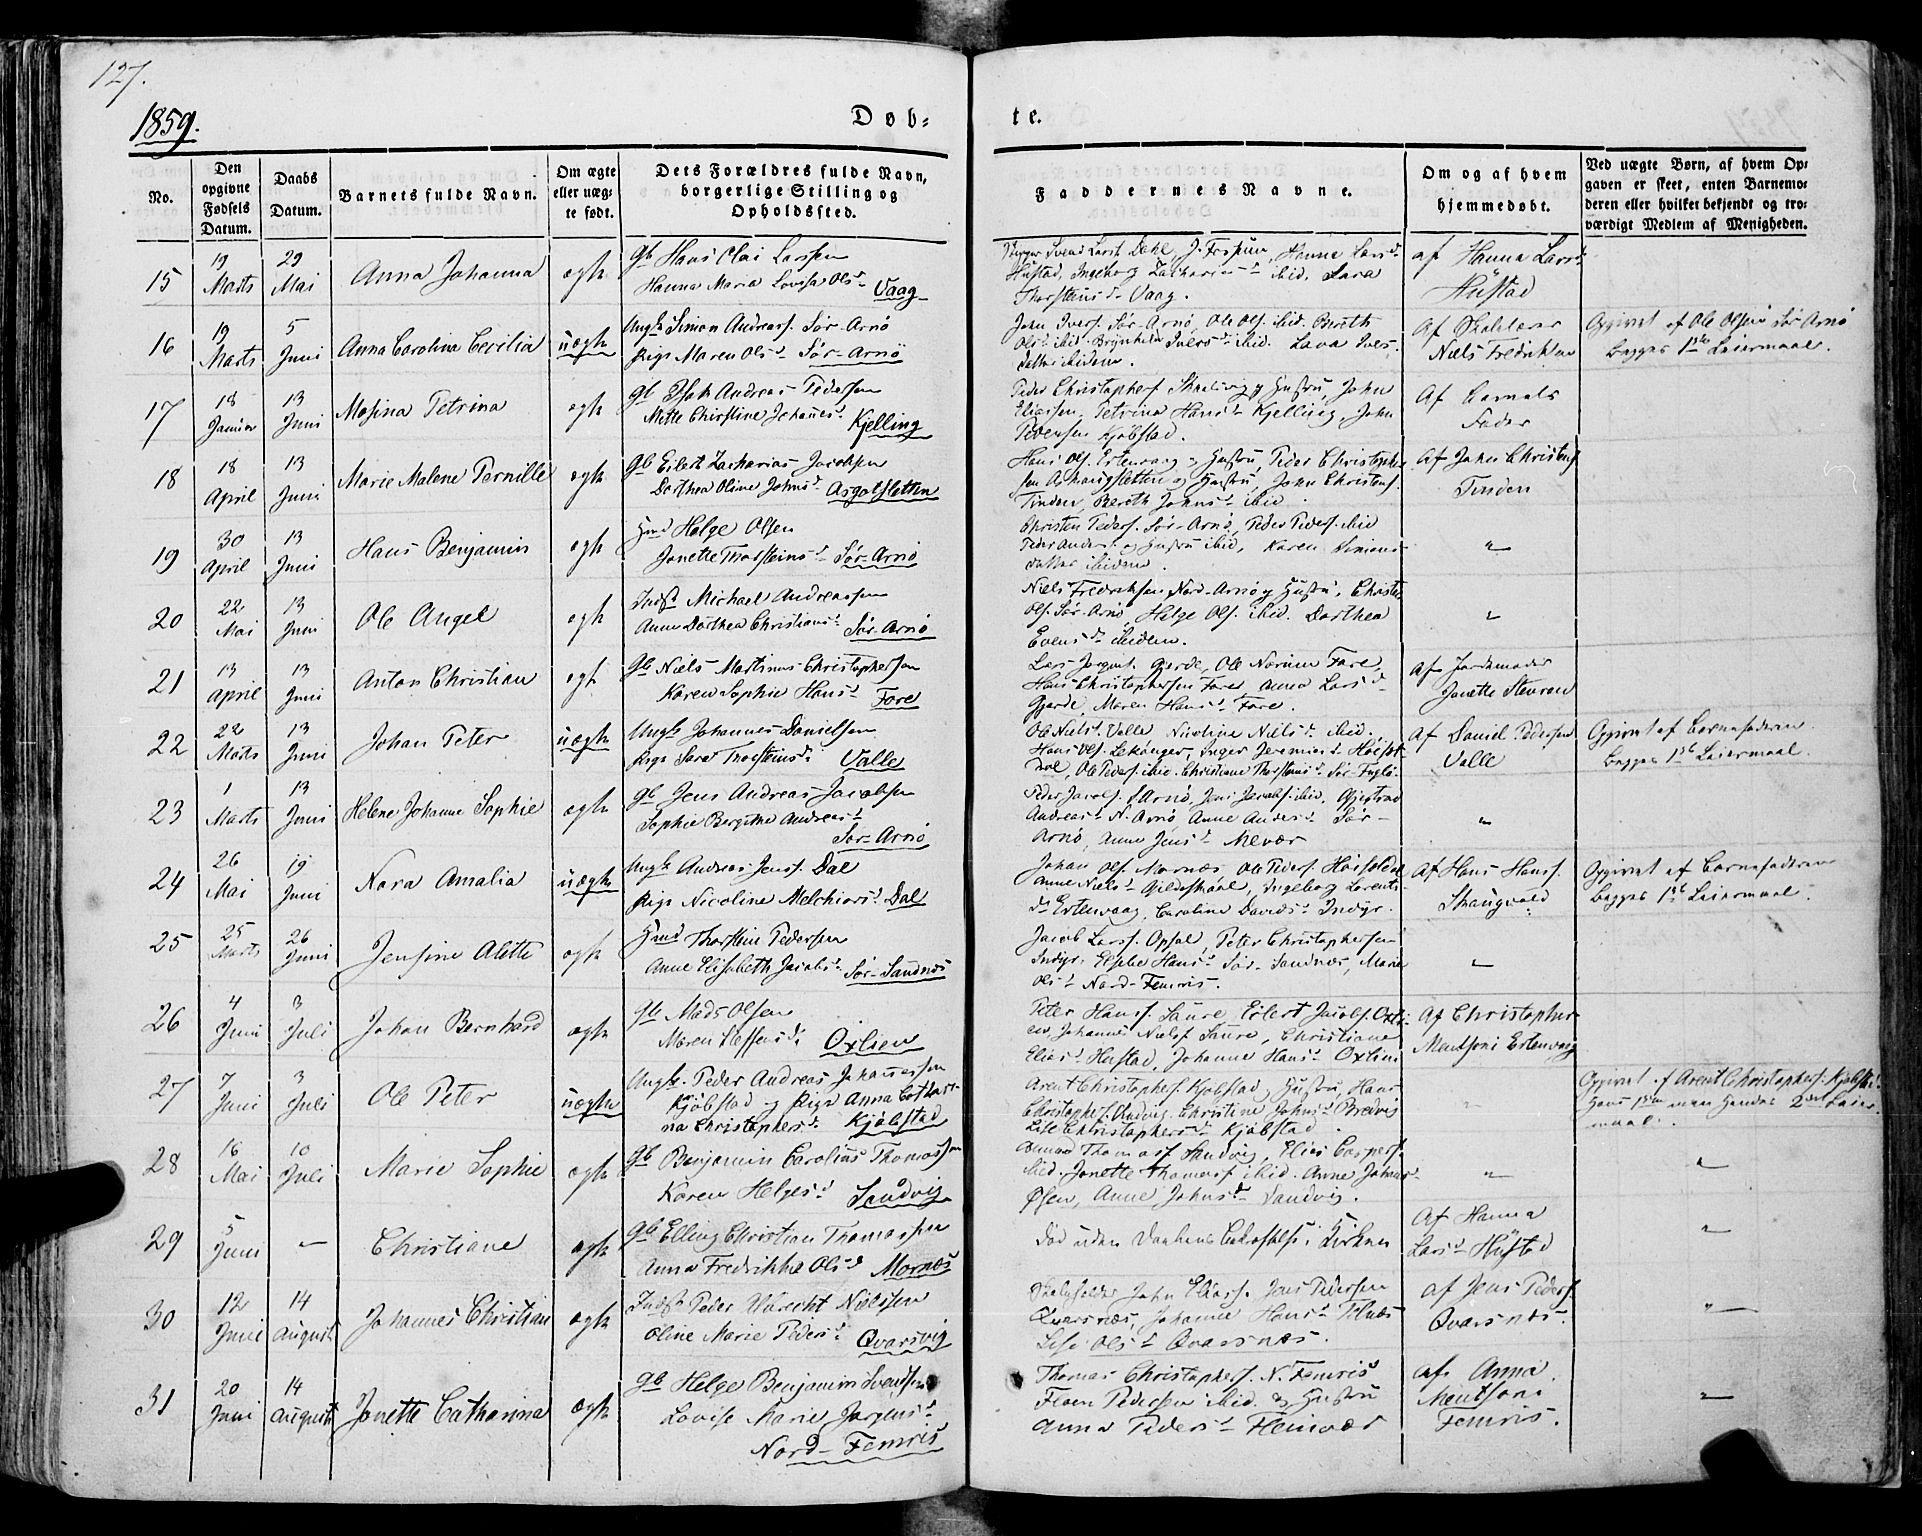 127.
1859.
Døb-
te.
No.
Den opgivne Fødsels Datum.
Daabs Datum.
Barnets fulde Navn.
Om ægte eller uægte født.
Dets Forældres fulde Navn, borgerlige Stilling og Opholdssted.
Faddernes Navne.
Om og af hvem hjemmedøbt.
Ved uægte Børn, af hvem Opgaven er skeet, enten Barnemoderen eller hvilket bekjendt og troværdigt Medlem af Menigheden.
15
19 Marts
29 Mai
Anna Johanna
ægte
Gb Hans Olai Larssen
Hanna Maria Lovisa Olsd. Vaag
Svend Larss. Dahl, Hanna Larsd.
Hustad, Ingeborg Zachariasd. ibid. Sara
Thorsteinsd. Vaag.
af Hanna Larsd.
Hustad
16
19 Marts
5 Juni
Anna Carolina Cecilia
uægte
Ungk Simon Andreas. Sør-Arnø
Pige Maren Olsd. Sør-Arnø
John Ivers. Sør-Arnø, Ole Ols. ibid. Bereth
Olsd. ibid. Brynhild Iversd. ibid. Lava Ivers-
datter ibidem.
Af
Niels Fredriksen
Opgivet af Ole Olsen Sør Arnø
Begges 1ste Leiermaal.
17
18 Januar
13 Juni
Masina Petrina
ægte
Gb Isak Andreas Pedersen
Mette Christine Johanesd. Kjelling
Peder Christophers. Skaulvog og Hustru, John
Eliassen, Petrina Hansd. Kjelling, John
Pedersen Kjøbstad.
Af Barnets
Fader
18
18 April
13 Juni
Marie Malene Pernille
ægte
Gb Eilert Zacharias Jacobsen
Dorthea Oline Johnsd. Asgotsletten
Hans Ols. Ertenvaag og Hustru, Peder Christopher-
sen Ashaugsletten og Hustru, John Christens.
Tinden, Bereth Johnsd. ibid.
Af John Christens.
Tinden
19
30 April
13 Juni
Hans Benjamin
ægte
Hmd Helge Olsen
Jonette Thorsteinsd. Sør-Arnø
Christen Peders. Sør-Arnø, Peder Peders. ibid
Peder Anders. og Hustru ibid, Karen Simons-
datter ibidem.
"
20
22 Mai
13 Juni
Ole Angel
ægte
Indst Michael Andreassen
Anne Dorthea Christiansd. Sør-Arnø
Niels Fredriksen Nord-Arnø og Hustru, Christen
Ols. Sør-Arnø, Helge Ols. ibid. Dorthea
Evensd. ibidem.
"
21
13 April
13 Juni
Anton Christian
ægt
Gb Niels Martinus Christophersen
Karen Sophie Hansd. Fore
Lars Jørgens. Gjerde, Ole Fore,
Hans Christophersen Fore, Anna Larsd.
Gjerde, Maren Hansd. Fore.
Af Jordemoder
Jonette
22
22 Marts
13 Juni
Johan Peter
uægte
Ungk Johannes Danielsen
Pige Sara Thorsteinsd. Valle
Ole Niels. Valle, Nicoline Nielsd. ibid.
Hans Ols. Lekanger, Inger Jeremiasd. Høist-
dal, Ole Peders. ibid. Christiane Thorsteinsd. Sør-Fuglø.
Af Daniel Pedersen
Valle
Opgivet af Barnefaderen
Begges 1ste Leiermaal.
23
1 Marts
13 Juni
Helene Johanne Sophie
ægte
Gb Jens Andreas Jacobsen
Sophie Bergithe Andreasd.
Sør-Arnø
Peder Jacobs. S Arnø, Jens Jacobs. ibid.
Andreasd. N. Arnø, Anne Andersd. Sør-
Arnø, Anne Jensd. Mevær
"
24
26 Mai
19 Juni
Nora Amalia
uægte
Ungk Andreas Jens. Dal
Pige Nicoline Melchiorsd. Dal
Johan Ols. Mornæs, Ole Peders. Høistdal
Anne Nielsd. Gildeskaal, Ingeborg Lorents-
d. Ertenvaag, Caroline Davidsd. Indyr.
Af Hans Hans.
Skaugvold
Opgivet af Barnefaderen
Begges 1ste Leiermaal.
25
25 Marts
26 Juni
Jensine Alette
ægte
Hmd Thorstein Pedersen
Anne Elisabeth Jacobsd. Sør-Sandnæs
Jacob Larss. Opsal, Peter Christophersen
Indyr, Elsebe Hansd. Sør-Sandnæs, Marie
Olsd. Nord-Femris.
"
26
4 Juni
3 Juli
Johan Bernhard
ægte
Gb Mads Olsen
Maren Steffensd. Oxlien
Peter Hans. Saure, Eilert Jacobs. Oxli-
en, Johannes Niels. Saure, Christiane
Eliasd. Hustad, Johanne Hansd. Oxlien
Af Christopher
Mentsoni Ertenvaag
27
7 Juni
3 Juli
Ole Peter
uægte
Ungk. Peder Andreas Johannessen
Kjøbstad og Pige Anna Cathari-
na Christophersd. Kjøbstad
Arent Christophers. Kjøbstad og Hustru, Hans
Christophers. Christine Johnsd. Bredvig
Lise Christophersd. Kjøbstad.
"
Opgivet af Arent Christophers. Kjøbstad.
Hans 1ste men Hendes 2det Leier-
maal.
28
16 Mai
10 Juli
Marie Sophie
ægte
Gb Benjamin Carolius Thomassen
Karen Helgesd. Sandvig
Thomass. Sandvig, Elias Caspers.
ibid. Jonette Thomasd. ibid. Anne Johns-
Øsen, Anne Johnsd. Sandvig.
"
"
29
5 Juni
—
Christiane
ægte
Gb Elling Christian Thomassen
Anna Fredrikke Olsd. Mornæs
Død uden Daabens Bekræftelse i Kirken
Af Hanna
Larsd. Hustad
"
30
12 Juni
14 August
Johannes Christian
ægte
Indst Peder Ulrecht Nielssen
Oline Marie Pedersd. Qvarsvig
John Eliass. Jens Pedersen
Qvarsnæs, Johanne Hansd. Telnæs
Lise Olsd. Qvarsnæs.
af Jens Peders.
Qvarsnæs.
"
31
20 Juni
14 August
Jonette Catharina
ægte
Gb Helge Benjamin Svendsen
Lovise Marie Jørgensd.
Nord-Femris
Thomas Christophers. N. Femris
Floer Pedersen ibid. og Hustru
Anna Pedersd. Fleinvær
af Anna
Mentsoni
Femris.
"